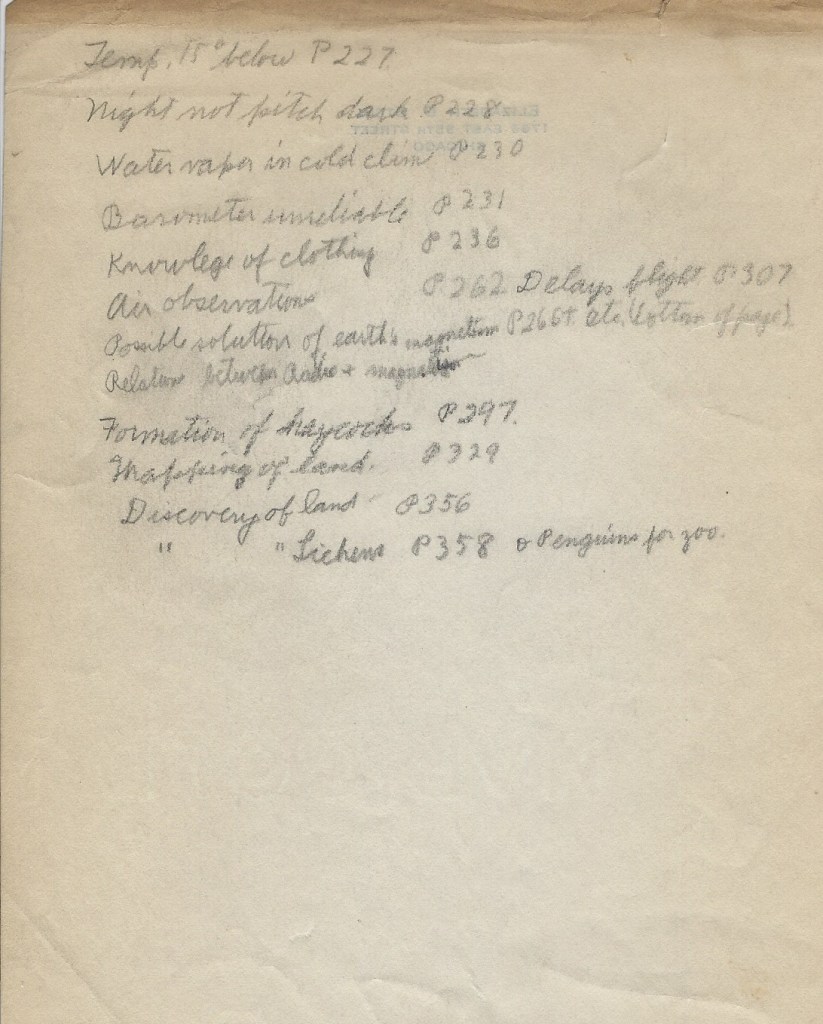 Temp. 15° below P 227.
Night not pitch dark P 228
Water vaper in cold clim P 230
Barometer unreliable P 231
Knowlege of clothing P 236
Air observations P 262 Delays flight P 307
Possible solution of earth's magnetism P 266+ etc. (bottom of page)
Relation between Radio + magnetism
Formation of haycocks P 297.
Mapping of land. P 329
Discovery of land P 356
" " Lichens P 358 & Penguins for zoo.
EAST 95TH STREET
CHICAGO